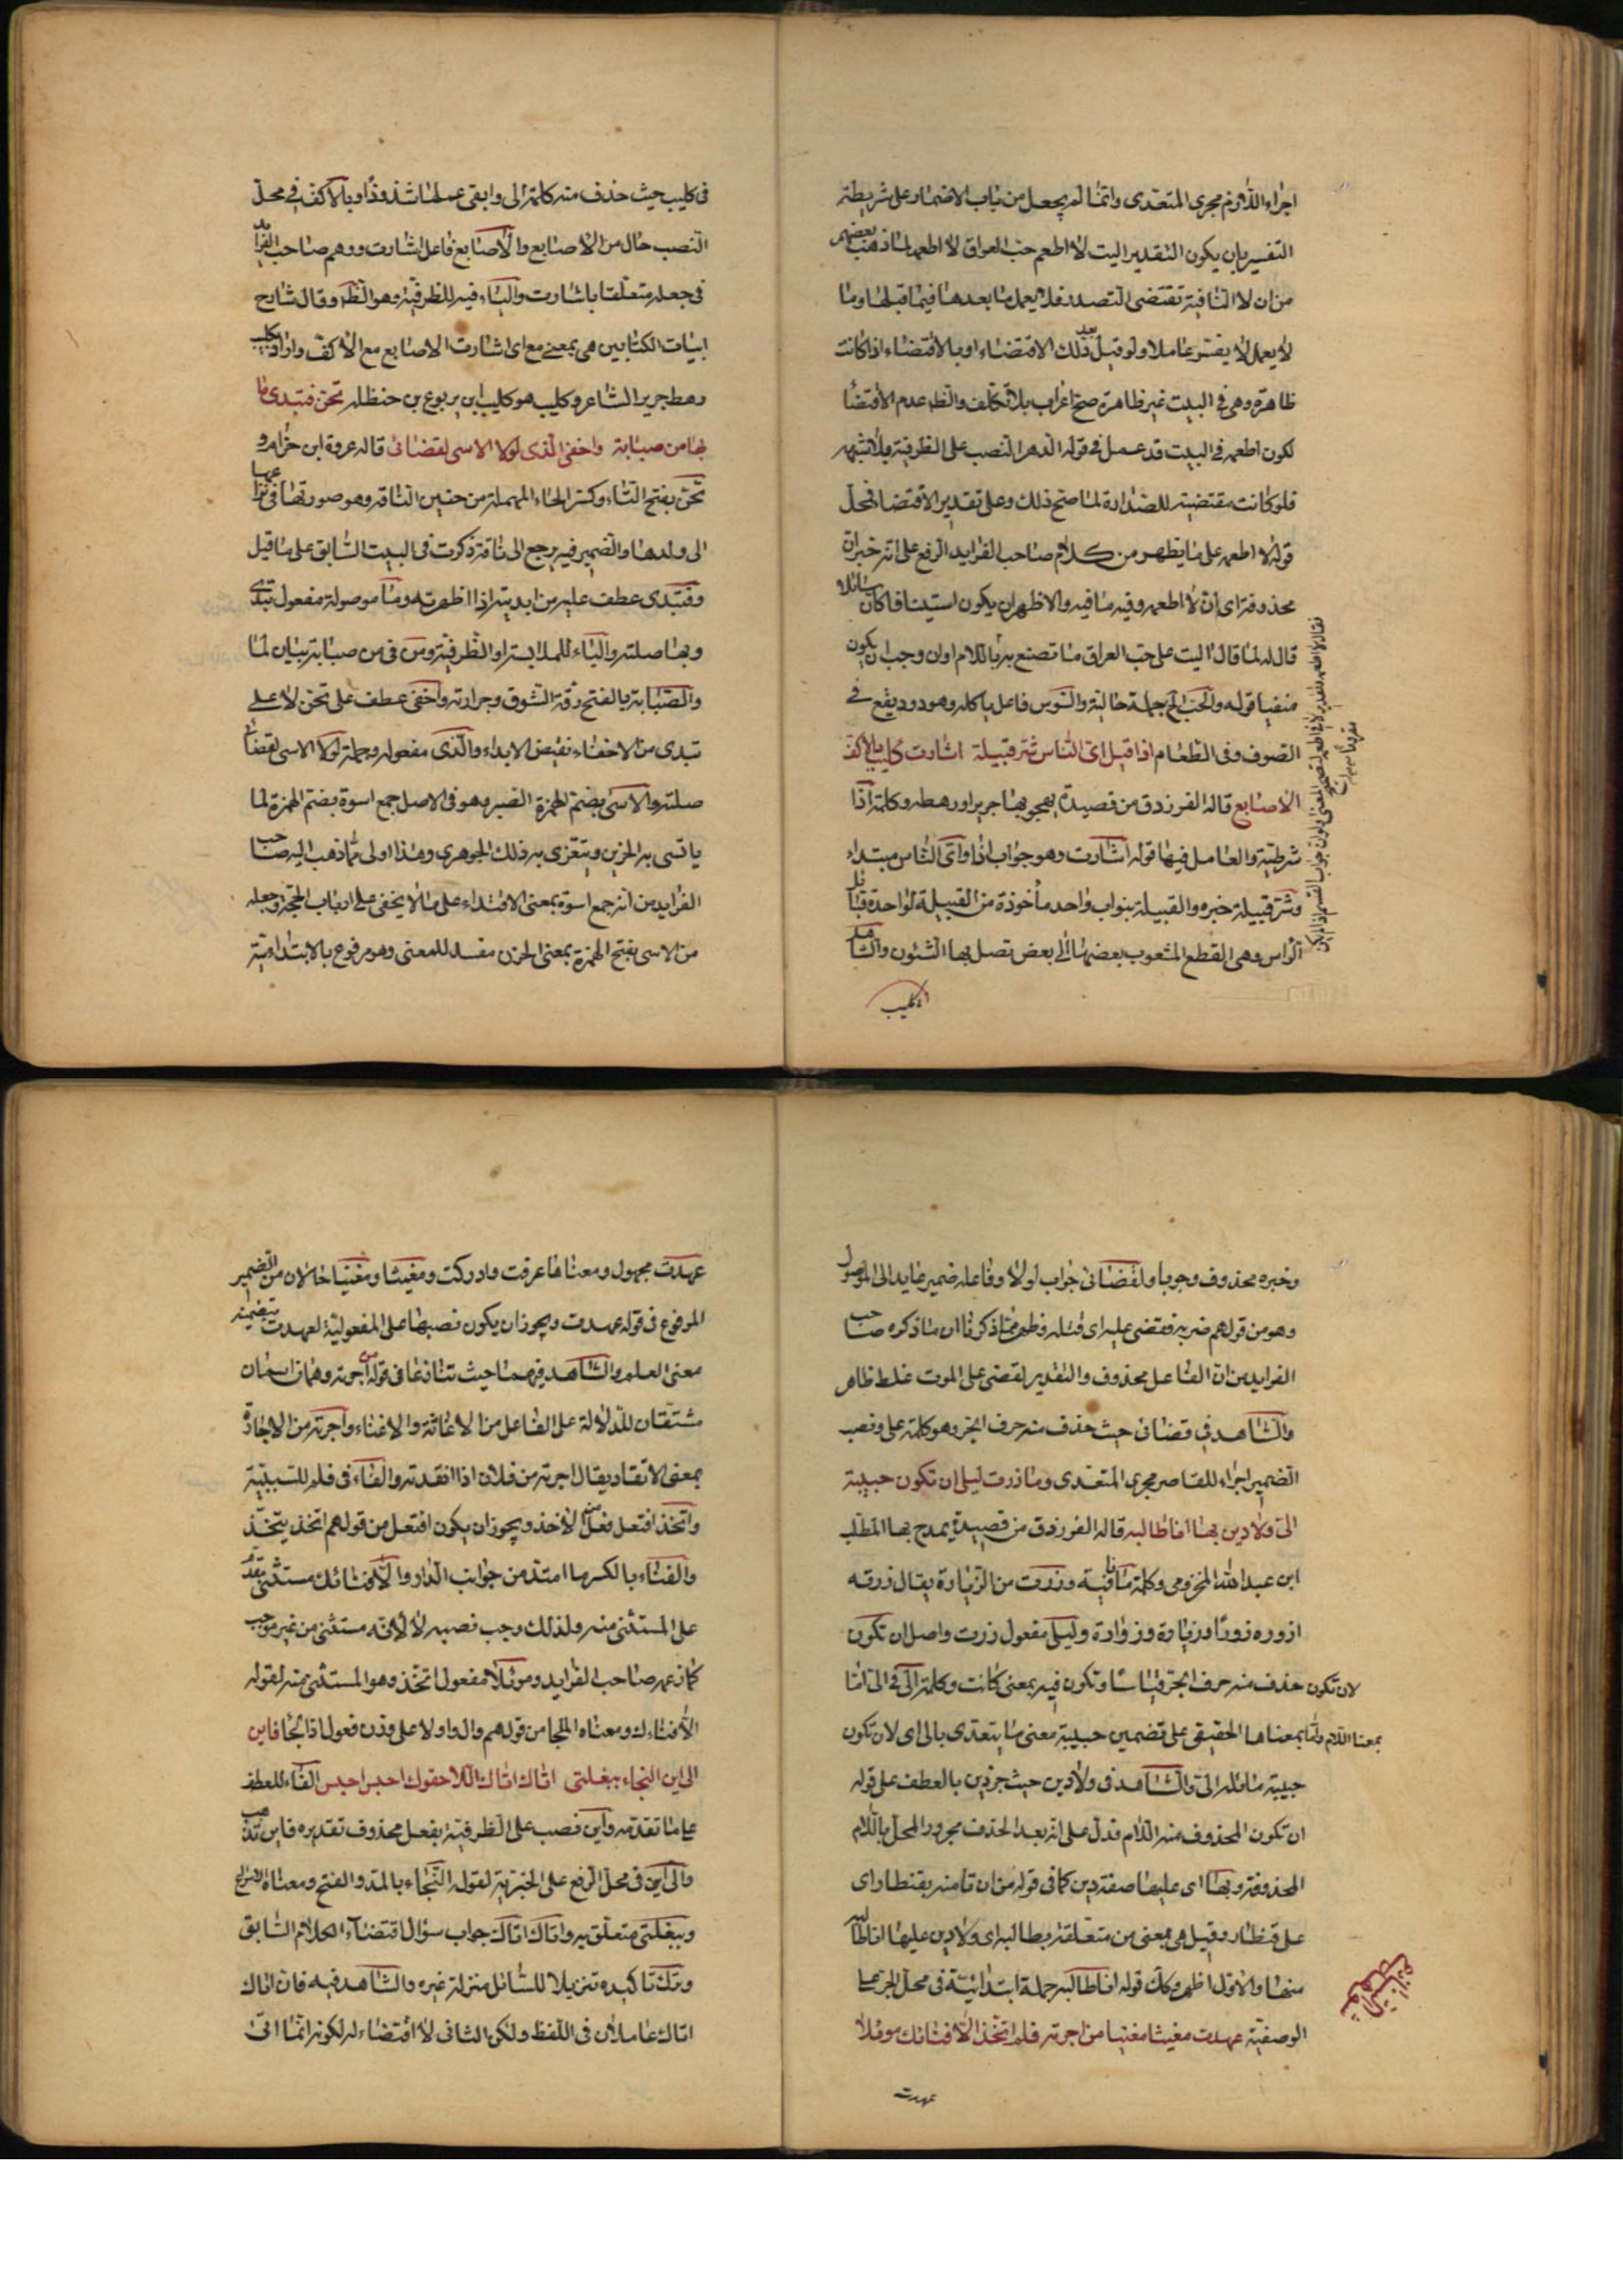 اجراء اللازم مجرى المتعدى وانما لم يجعل من باب الاضمار على شريطة
التفسير بان يكون التقدير اليت لا اطعم حب العراق لا اطعمه لما ذهب بعضهم
من ان لا النافية تقتضى التصدر فلا يعمل ما بعدها فيما قبلها وما
لا يعمل لا يفسر عاملا ولو قيل بعد ذلك الاقتضاء او بالاقتضاء اذا كانت
ظاهرة وهى فى البيت غير ظاهرة صح اعراب بلا تكلف والظ عدم الاقتضا
لكون اطعمه فى البيت قد عمل فى قوله الدهر النصب على الظرفية بلا شبهه
فلو كانت مقتضية للصدارة لما صح ذلك وعلى تقدير الاقتضاء فمحل
قوله لا اطعمه على ما يظهر من كلام صاحب الفرايد الرفع على انه خبر ان
محذوفة اى انى لا اطعمه وفيه ما فيه والاظهر ان يكون استينافا كان سائلا
قال له لما قال اليت على حب العراق ما تصنع به باللام اوان وجب ان يكون
منفيا قوله والحب الخ جملة حالية والسوس فاعل ياكله وهو دود يقع فى
الصوف وفى الطعام اذا قيل اى الناس شر قبيلة اشارت كليب بالاكف
الاصابع قاله الفرزدق من قصيدة يهجو بها جرير اورهطه وكلمة اذا
شرطية والعامل فيها قوله اشارت وهو جواب اذا واى الناس مبتداء
وشر قبيلة خبره والقبيلة بنواب واحد مأخوذة من القبيلة لواحدة قبائل
الراس وهى القطع المشعوب بعضها الى بعض تصل بها الشئون والشاهد
فى كليب
فى كليب حيث حذف منه كلمة الى وابقى عملها شذوذا وبالاكف فى محل
النصب حال من الاصابع والاصابع فاعل اشارت ووهم صاحب الفرايد
فى جعله متعلقا باشارت والباء فيه للظرفية وهو الظ وقال شارح
ابيات الكتابين هى بمعنى مع اى اشارت الاصابع مع الاكف واراد بكليب
رهط جرير الشاعر وكليب هو كليب ابن يربوع بن حنظله تحن فتبدى ما
بها من صبابة واخفى الذى لولا الاسى لقضانى قاله عروة ابن حزام و
تحن بفتح التاء وكسر الحاء المهملة من حنين الناقه وهو صوتها فى نزاعها
الى ولدها والضمير فيه يرجع الى ناقة ذكرت فى البيت السابق على ما قيل
وفتبدى عطف عليه من ابديته اذا اظهرته وما موصولة مفعول تبدى
وبها صلته والباء للملابسة او الظرفية ومن فى من صبابة بيان لما
والصبابة بالفتح رقة الشوق وحرارته واخفى عطف على تحن لا على
تبدى من الاخفاء نقيض الابداء والذى مفعوله وجملة لولا الاسى لقضانى
صلته والاسى بضم الهمزة الصبر وهو فى الاصل جمع اسوة بضم الهمزة لما
ياتسى به الحزين ويتعزى به ذلك الجوهرى وهذا اولى مما ذهب اليه صاحب
الفرايد من انه جمع اسوة بمعنى الاقتداء على ما لا يخفى على ارباب الحجى وجعله
من الاسى بفتح الهمزة بمعنى الحزن مفسد للمعنى وهو مرفوع بالابتدائية
وخبره محذوف وجوبا ولقضانى جواب لولا وفاعله ضمير عايد الى الموصول
وهو من قولهم ضربه فقضى عليه اى قتله فظهر مما ذكرنا ان ما ذكره صاحب
الفرايد من ان الفاعل محذوف والتقدير لقضى على الموت غلط ظاهر
والشاهد فى قضانى حيث حذف منه حرف الجر وهو كلمة على ونصب
الضمير اجراء للقاصر مجرى المتعدى وما زرت ليلى ان تكون حبيبة
الى ولا دين بها انا طالبه قاله الفرزدق من قصيدة يمدح بها المطلب
ابن عبد الله المخزومى وكلمة ما نافية وزرت من الزيارة يقال زرته
ازوره زورا وزيارة وزوارة وليلى مفعول زرت واصل ان تكون
لان تكون حذف منه حرف الجر قياسا وتكون فيه بمعنى كانت وكلمة الى فى الى اما
بمعنا اللام واما بمعناها الحقيقى على تضمين حبيبة معنى ما يتعدى بالى اى لان تكون
حبيبة مائله الى والشاهد فى ولا دين حيث جر دين بالعطف على قوله
ان تكون المحذوف منه اللام فدل على انه بعد الحذف مجرور المحل باللام
المحذوفة وبها اى عليها صفة دين كما فى قوله من ان تامنه بقنطار اى
على قنطار وقيل هى بمعنى من متعلقة بطالبه اى ولا دين عليها انا طالبه
منها والاول اظهر وكان قوله انا طالبه جملة ابتدائية فى محل الجر على
الوصفية عهدت مغيثا مغنيا من اجرته فلم اتخذ الا فنائك موئلا
عهدت
عهدت مجهول ومعناها عرفت وادركت ومغيثا ومغنيا حالان من الضمير
المرفوع فى قوله عهدت ويجوز ان يكون نصبها على المفعولية لعهدت بتضمينه
معنى العلم والشاهد فيهما حيث تنازعا فى قوله من اجرته وهما اسمان
مشتقان للدلالة على الفاعل من الاغاثة والاغناء واجرته من الاجارة
بمعنى الانقاد يقال اجرته من فلان اذا انقدته والفاء فى فلم للسببية
واتخذ افتعل فعل من الاخذ ويجوز ان يكون افتعل من قولهم اتخذ يتخذ
والفناء بالكسر ما امتد من جوانب الدار والا فنائك مستثنى تقدم
على المستثنى منه ولذلك وجب نصبه لا لانه مستثنى من غير موجب
كما زعمه صاحب الفرايد وموئلا مفعول اتخذ وهو المستثنى منه لقوله
الا فناءك ومعناه الملجا من قولهم وال داولا على وزن فعول اذا لجا فاين
الى اين النجاء ببغلتى اتاك اتاك اللاحقوك احبس احبس الفاء للعطف
على ما تقدمه واين نصب على الظرفية بفعل محذوف تقديره فاين تذهب
والى اين فى محل الرفع على الخبرية لقوله النجاء بالمد والفتح ومعناه الاسراع
وببغلتى متعلق به واتاك اتاك جواب سؤال اقتضاه الكلام السابق
وترك تاكيده تنزيلا للسائل منزلة غيره والشاهد فيه فان اتاك
اتاك عاملان فى اللفظ ولكن الثانى لا اقتضاء له لكونه انما اتى